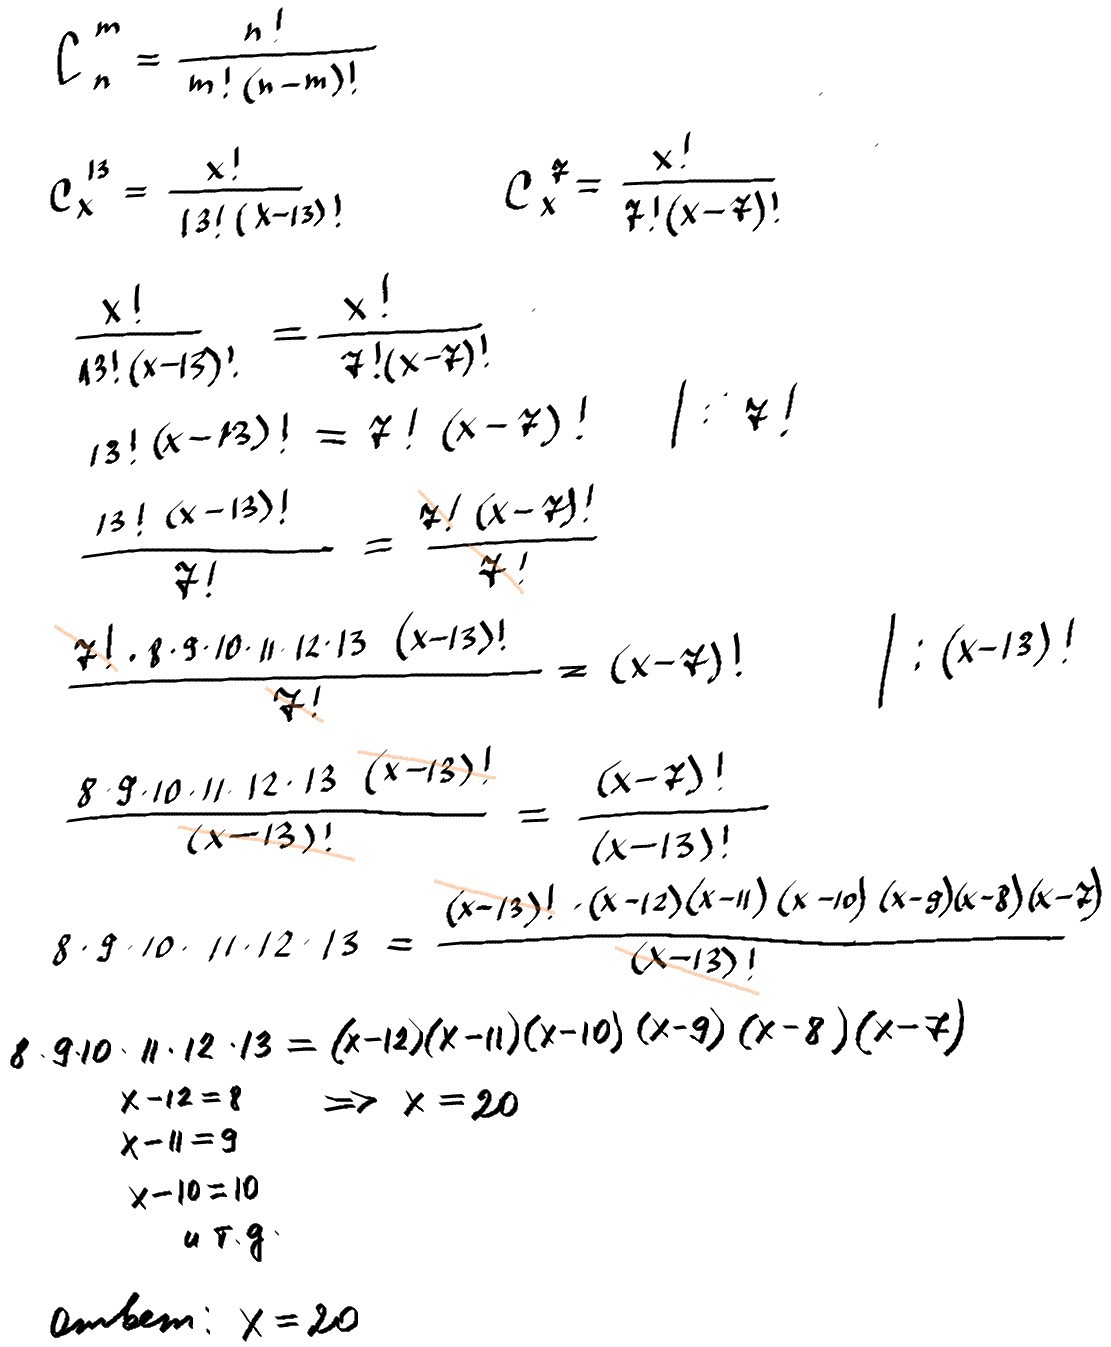 C_n^m = n! / m!(n-m)!
C_x^13 = x! / 13!(x-13)!    C_x^7 = x! / 7!(x-7)!
x! / 13!(x-13)! = x! / 7!(x-7)!
13!(x-13)! = 7! (x-7)!    | : 7!
13! (x-13)! / 7! = 7! (x-7)! / 7!
7! · 8 · 9 · 10 · 11 · 12 · 13 (x-13)! / 7! = (x-7)!    | : (x-13)!
8 · 9 · 10 · 11 · 12 · 13 (x-13)! / (x-13)! = (x-7)! / (x-13)!
8 · 9 · 10 · 11 · 12 · 13 = (x-13)! · (x-12)(x-11)(x-10)(x-9)(x-8)(x-7) / (x-13)!
8 · 9 · 10 · 11 · 12 · 13 = (x-12)(x-11)(x-10)(x-9)(x-8)(x-7)
x-12=8 => x=20
x-11=9
x-10=10
и т.д.
ответ: x=20